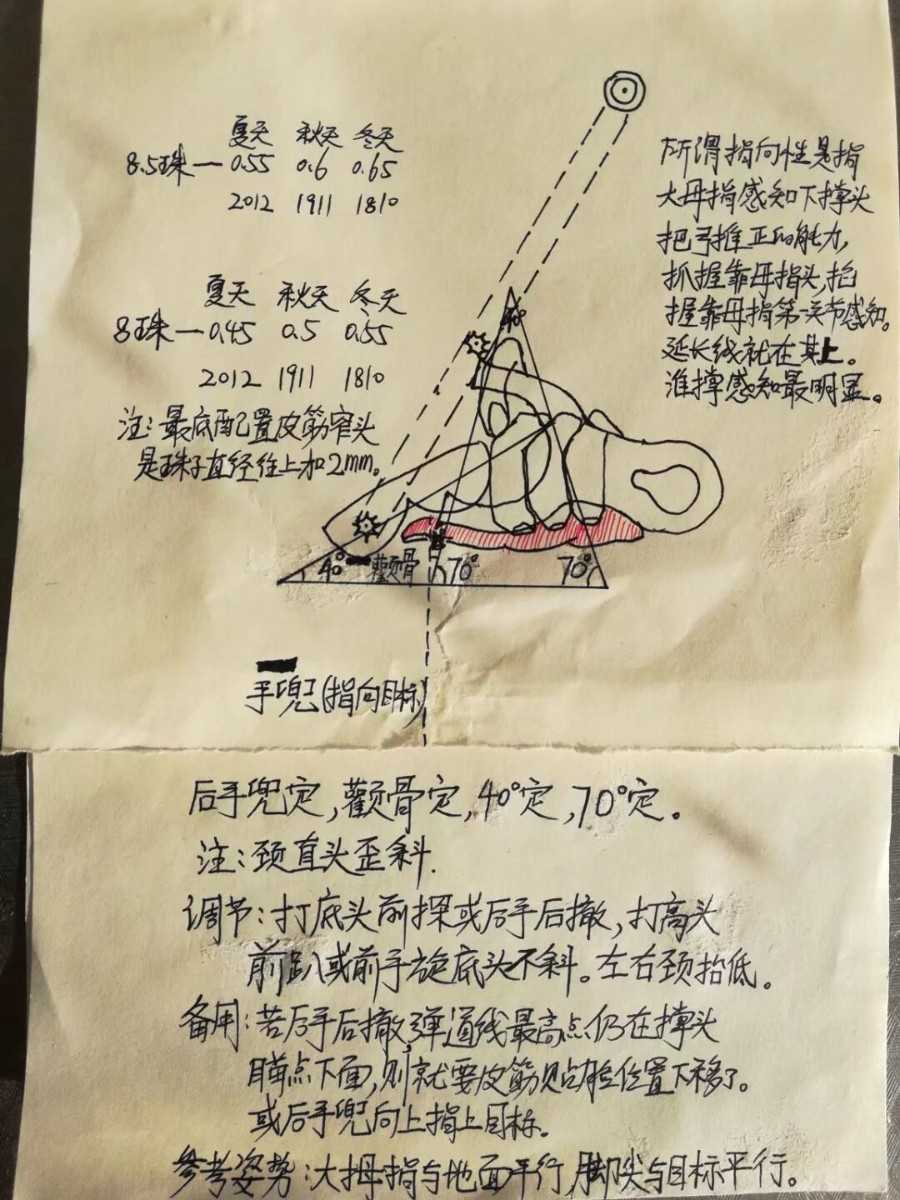 夏天 秋天 冬天
8.5珠—0.55 0.6 0.65
2012 1911 1810
夏天 秋天 冬天
8珠—0.45 0.5 0.55
2012 1911 1810
注:最底配置皮筋窄头
是珠子直经往上加2mm。
所谓指向性是指
大母指感知下撑头
把弓推正的能力,
抓握靠母指头,掐
握靠母指第一关节感知。
延长线就在其上。
准撑感知最明显。
40°
40° 颧骨 70° 70°
手兜(指向目标)
后手兜定,颧骨定,40°定,70°定。
注:颈直头歪斜.
调节:打底头前探或后手后撤,打高头
前趴或前手旋底头不斜。左右颈抬低。
备用:若后手后撤,弹道线最高点仍在撑头
瞄点下面,则就要皮筋贴脸位置下移了。
或后手兜向上指上目标。
参考姿势:大拇指与地面平行,脚尖与目标平行。